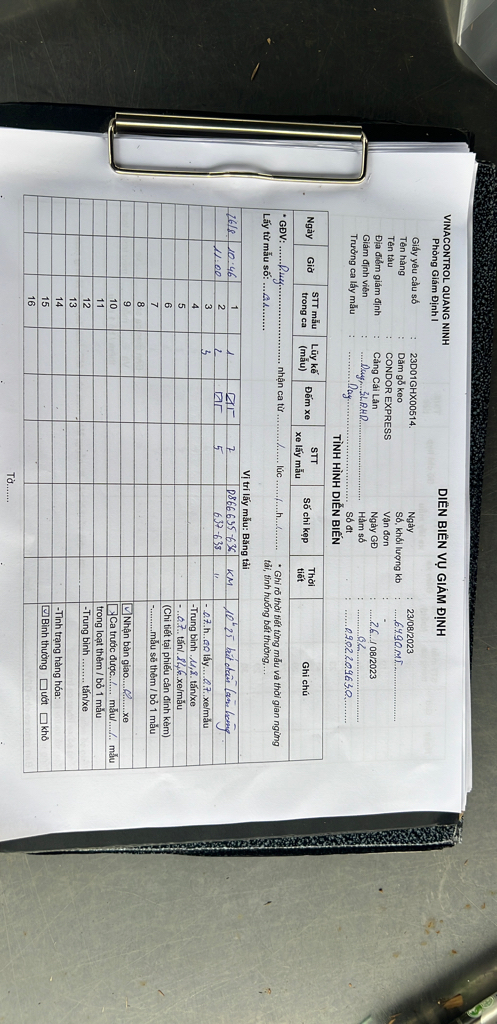 VINACONTROL QUANG NINH
Phòng Giám Định I
DIỄN BIẾN VỤ GIÁM ĐỊNH
Giấy yêu cầu số : 23D01GHX00514. Ngày : 23/08/2023
Tên hàng : Dăm gỗ keo Số, khối lượng kb : 6490MT
Tên tàu : CONDOR EXPRESS Vận đơn : -
Địa điểm giám định : Cảng Cái Lân Ngày GĐ : 26/08/2023
Giám định viên : Duy, Hầm số : 02
Trưởng ca lấy mẫu : Duy Số đt : 0902209630
TÌNH HÌNH DIỄN BIẾN
* GĐV: Duy nhận ca từ / lúc / h /
Lấy từ mẫu số: 01
* Ghi rõ thời tiết từng mẫu và thời gian ngừng tải, tình huống bất thường,...
Ngày Giờ STT mẫu trong ca Lũy kế (mẫu) Đếm xe STT xe lấy mẫu Số chì kẹp Thời tiết Ghi chú
Vị trí lấy mẫu: Băng tải
26/8 10:46 1 1 7 0866635-636 KM 10h25 bắt đầu làm hàng
11:00 2 2 5 637-638 "
3 3 - 07 h 00 lấy 07 xe/mẫu
4 -Trung bình tấn/xe
5 - 07 tấn/ xe/mẫu
6 (Chi tiết tại phiếu cân đính kèm)
7 -.........mẫu sẽ thêm / bỏ 1 mẫu
8
9 ☑ Nhận bàn giao xe
10 ☒ Ca trước được / mẫu / mẫu
11 trong loạt thêm / bỏ 1 mẫu
12 -Trung bình ......... tấn/xe
13
14 -Tình trạng hàng hóa:
15 ☑ Bình thường ☐ ướt ☐ khô
16
Tờ......